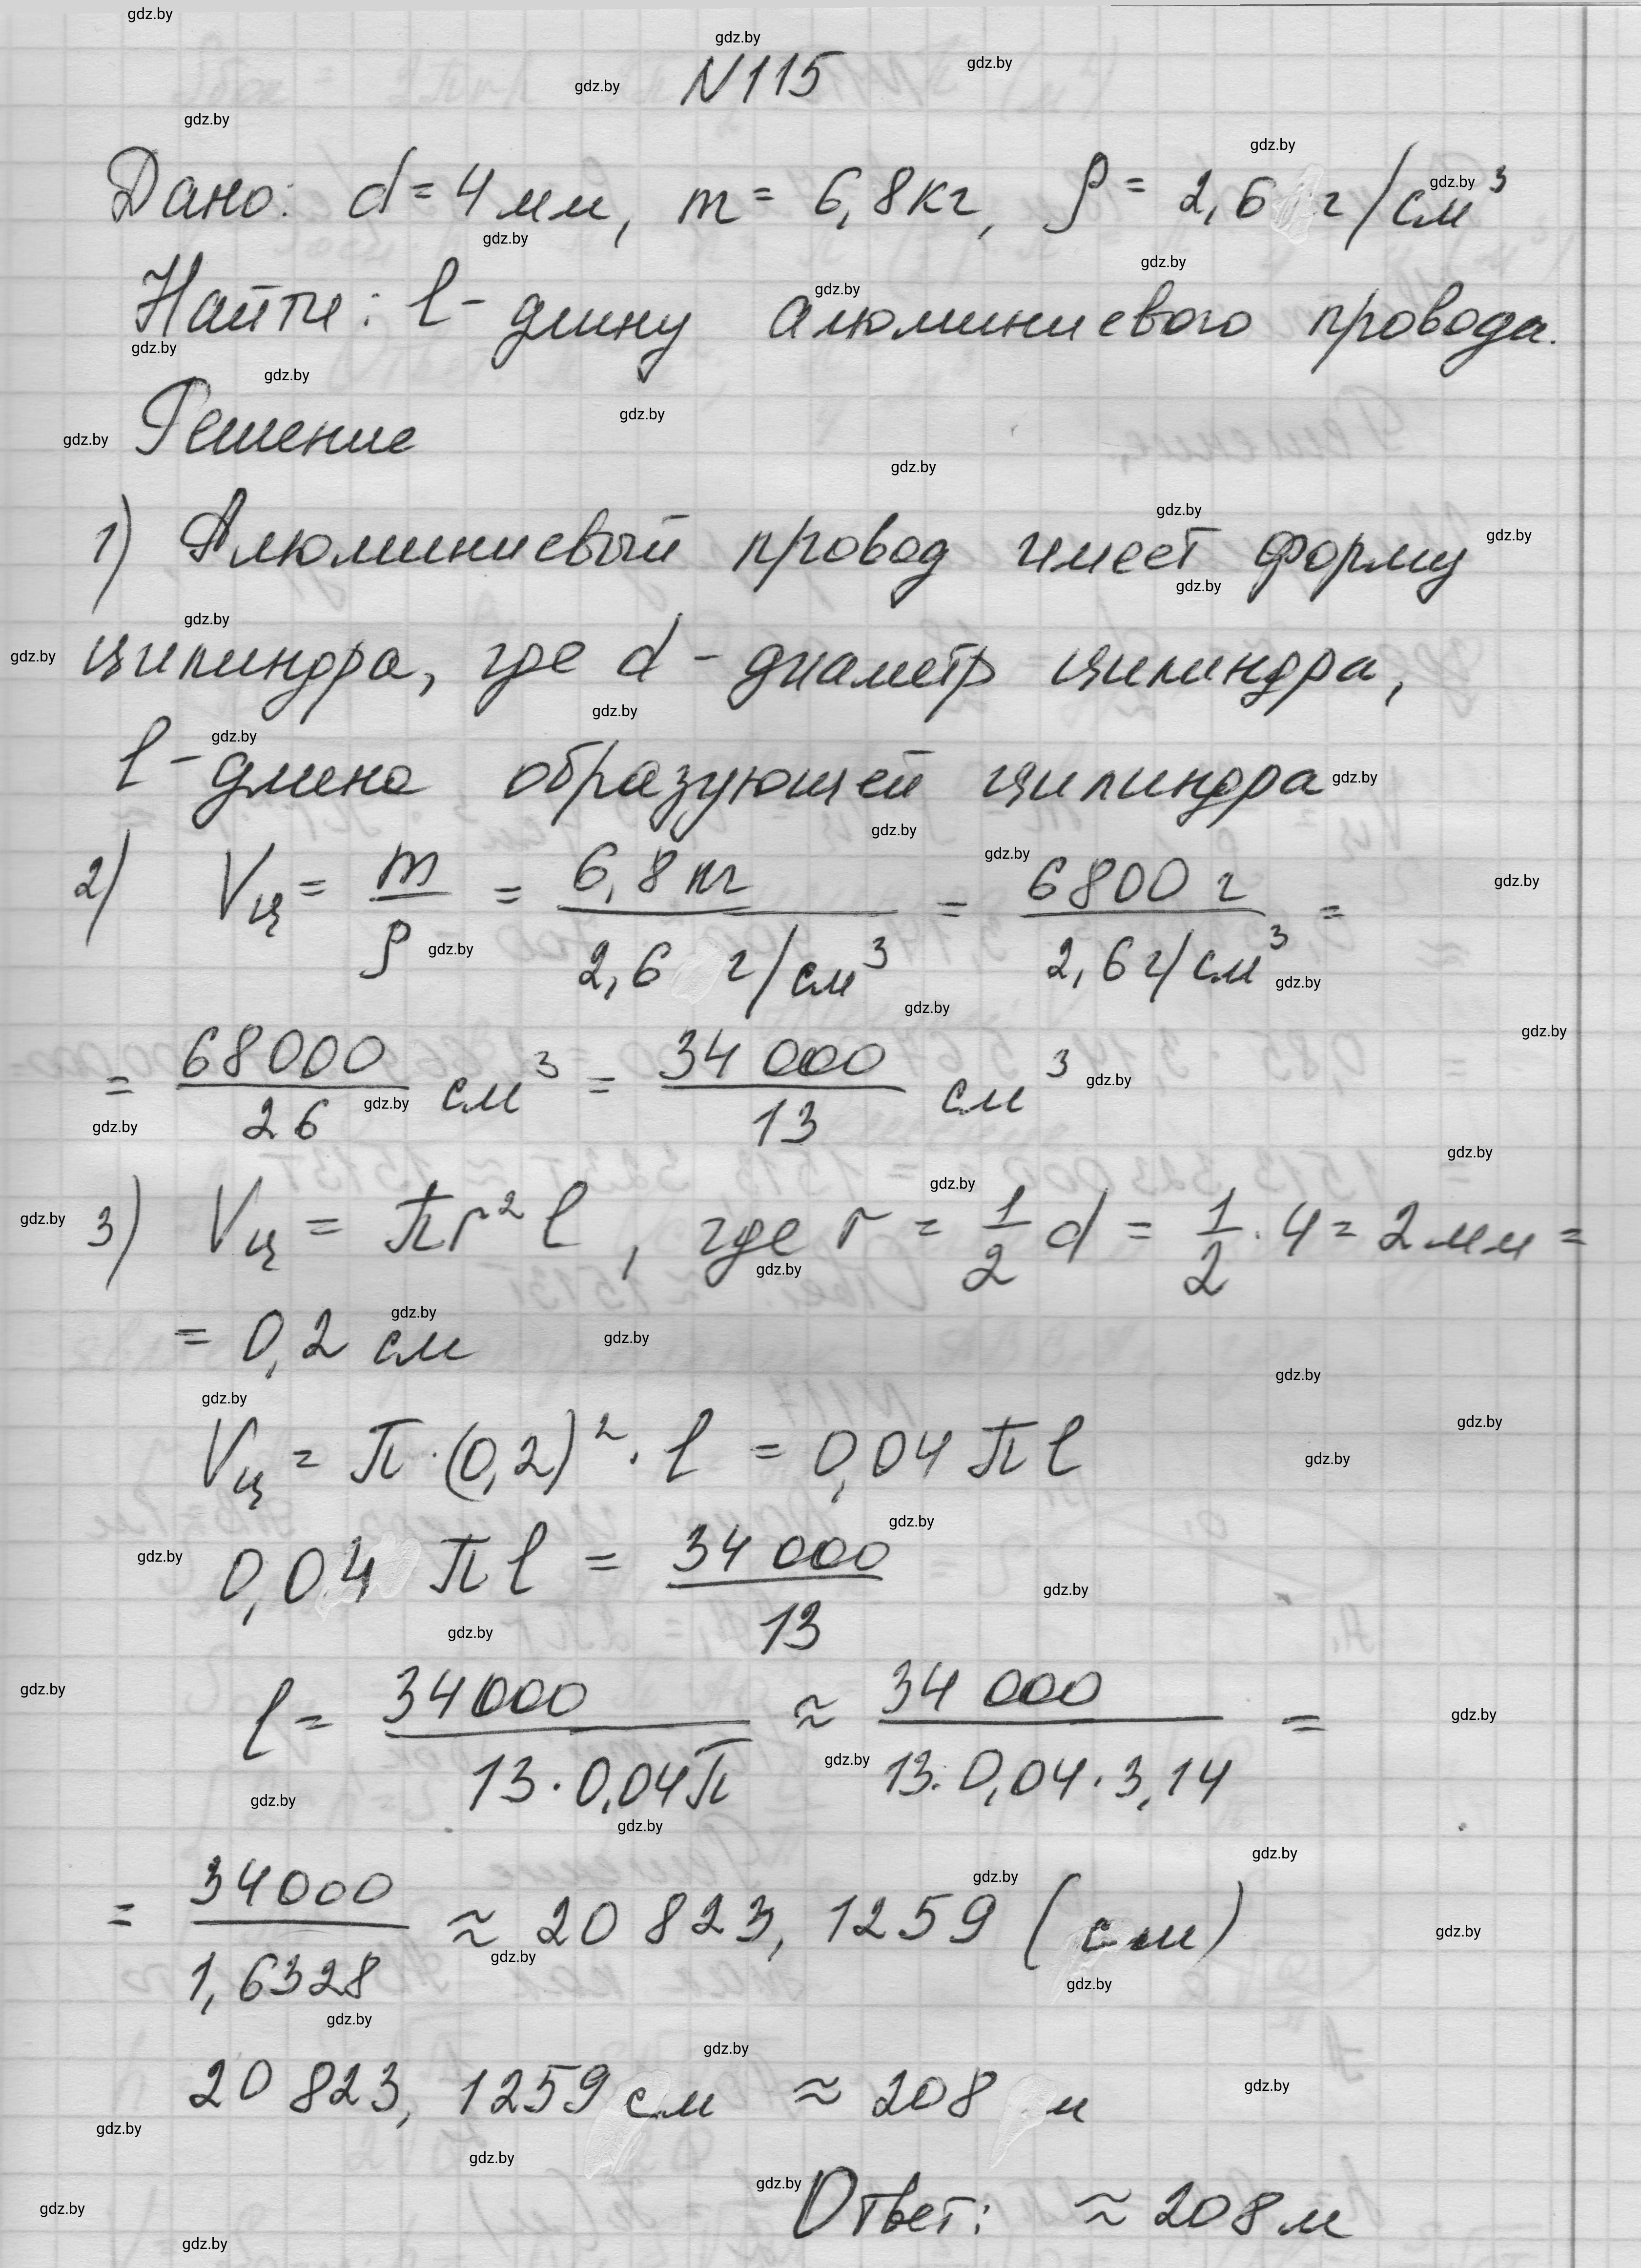 N115
Дано: d = 4 мм, m = 6,8 кг, ρ = 2,6 г/см³
Найти: l - длину алюминиевого провода.
Решение
1) Алюминиевый провод имеет форму
цилиндра, где d - диаметр цилиндра,
l - длина образующей цилиндра
2) Vц = m/ρ = 6,8 кг / 2,6 г/см³ = 6800 г / 2,6 г/см³ =
= 68000/26 см³ = 34 000/13 см³
3) Vц = πr²l, где r = 1/2 d = 1/2 · 4 = 2 мм =
= 0,2 см
Vц = π · (0,2)² · l = 0,04 πl
0,04 πl = 34 000/13
l = 34000 / 13 · 0,04π ≈ 34 000 / 13 · 0,04 · 3,14 =
= 34000 / 1,6328 ≈ 20 823, 1259 (см)
20 823, 1259 см ≈ 208 м
Ответ: ≈ 208 м
gdz.by